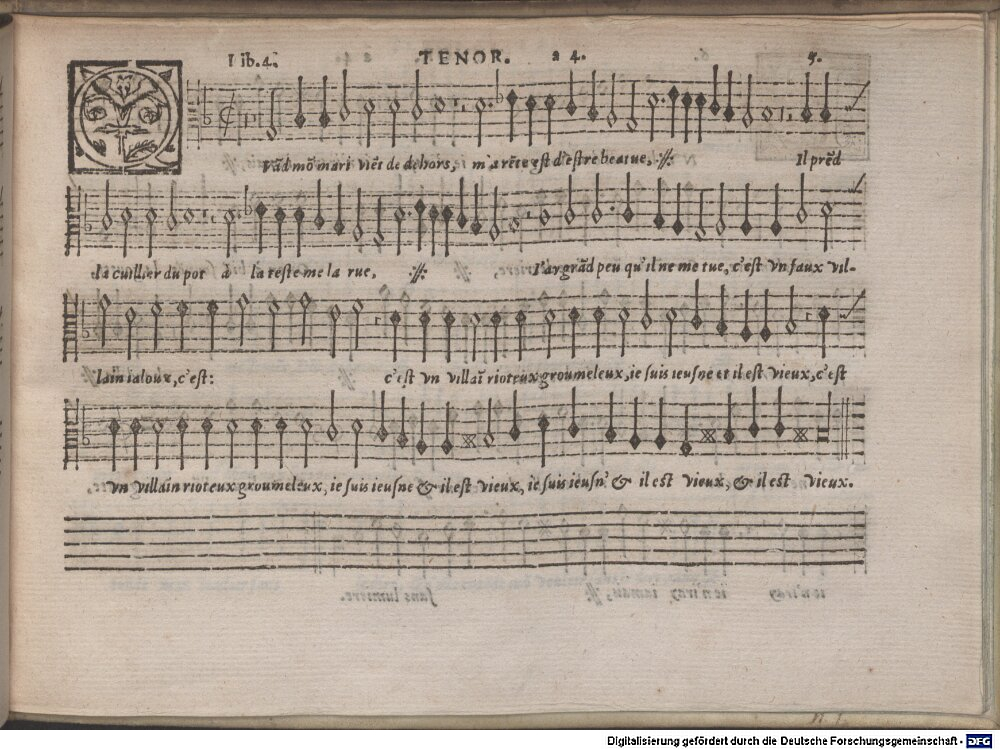 Lib.4. TENOR. a 4. 5.
QVãd mõ mari viẽt de dehors, m'a rẽte est d'estre beatue, :||: Il prẽd
la cuillier du pot à la teste me la rue, :||: I'ay grãd peu qu'il ne me tue, c'est vn faux vil-
lain ialoux, c'est: :||: c'est vn villaĩ rioteux groumeleux, ie suis ieusne et il est vieux, c'est
vn villain rioteux groumeleux, ie suis ieusne & il est vieux, ie suis ieusn' & il est vieux, & il est vieux.
Digitalisierung gefördert durch die Deutsche Forschungsgemeinschaft - DFG